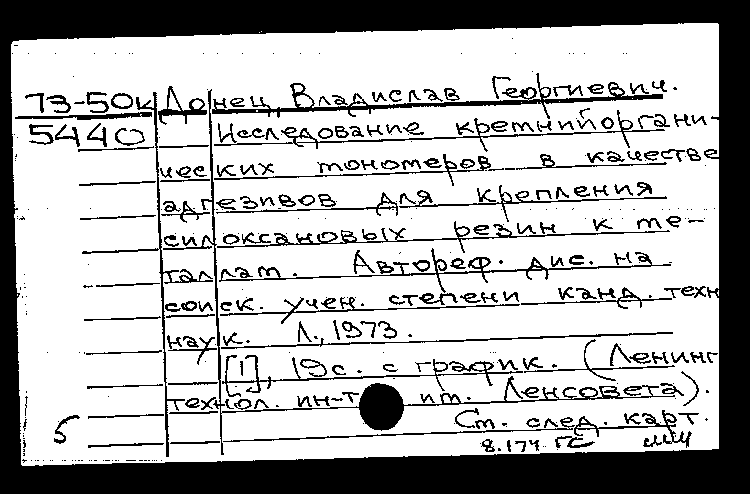 73-50к Донец, Владислав Георгиевич.
5440 Исследование кремнийоргани-
ческих мономеров в качестве
адгезивов для крепления
силоксановых резин к ме-
таллам. Автореф. дис. на
соиск. учен. степени канд. техн
наук. Л., 1973.
[1], 19с. с график. (Ленинг
технол. ин-т им. Ленсовета).
5 Ст. след. карт.
8.174.